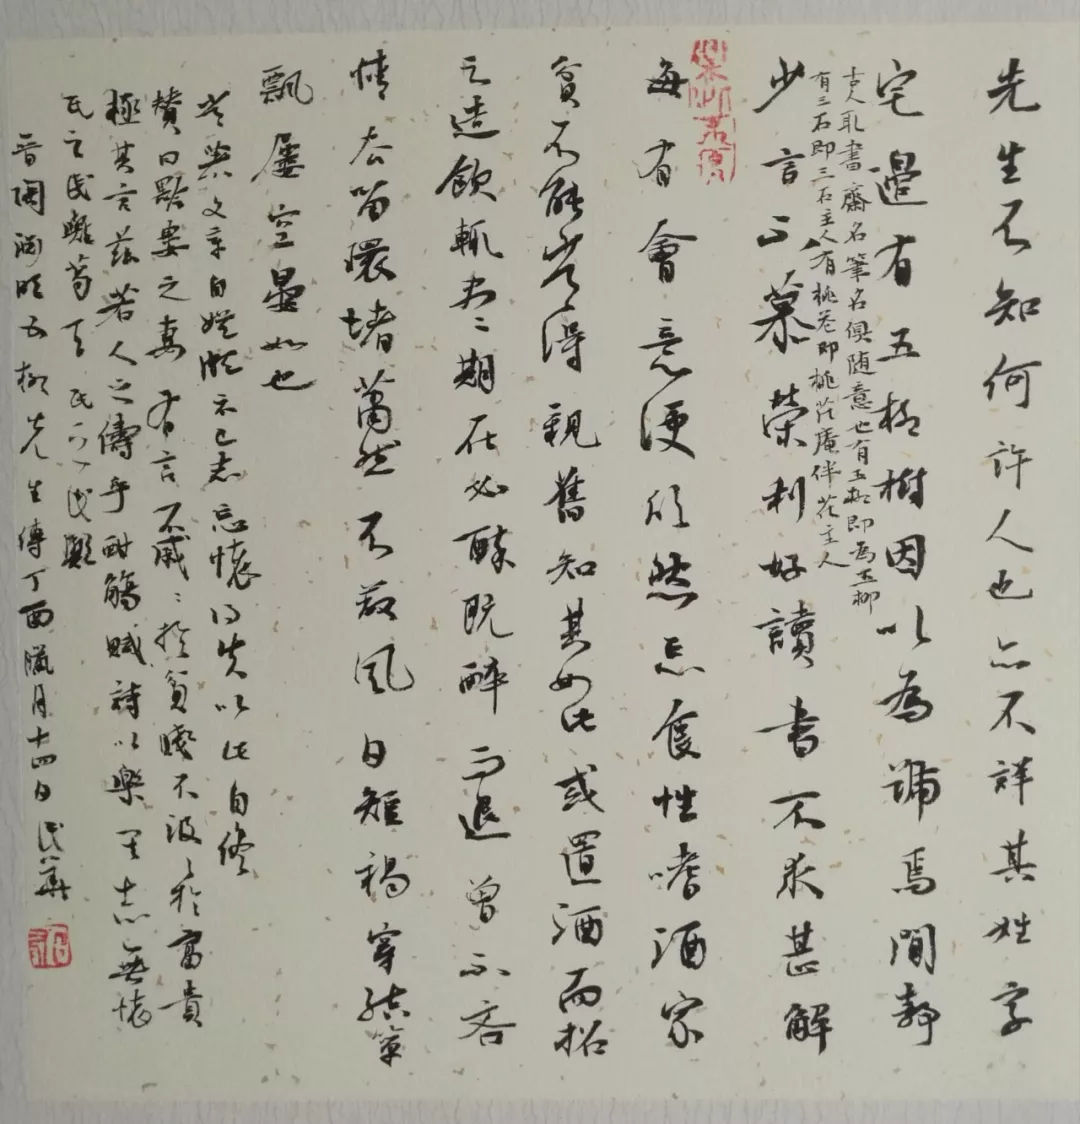 先生不知何許人也亦不详其姓字
宅邊有五柳樹因以為號焉閒静
古人取書齋名筆名俱随意也有五柳即為五柳
有三石即三石主人有桃花即桃花庵伴花主人
少言不慕榮利好讀書不求甚解
每有會意便欣然忘食性嗜酒家
貧不能常得親舊知其如此或置酒而招
之造飲輒尽〻期在必醉既醉而退曾不吝
情去留環堵蕭然不蔽風日短褐穿結箪
瓢屢空晏如也
常著文章自娱颇示己志忘懷得失以此自終
赞曰黔婁之妻有言不戚〻於貧賤不汲〻於富貴
極其言兹若人之儔乎酣觴賦詩以樂其志無懷
氏之民歟葛天氏之民歟
晉陶渊明五柳先生傳丁酉臘月十四日民華